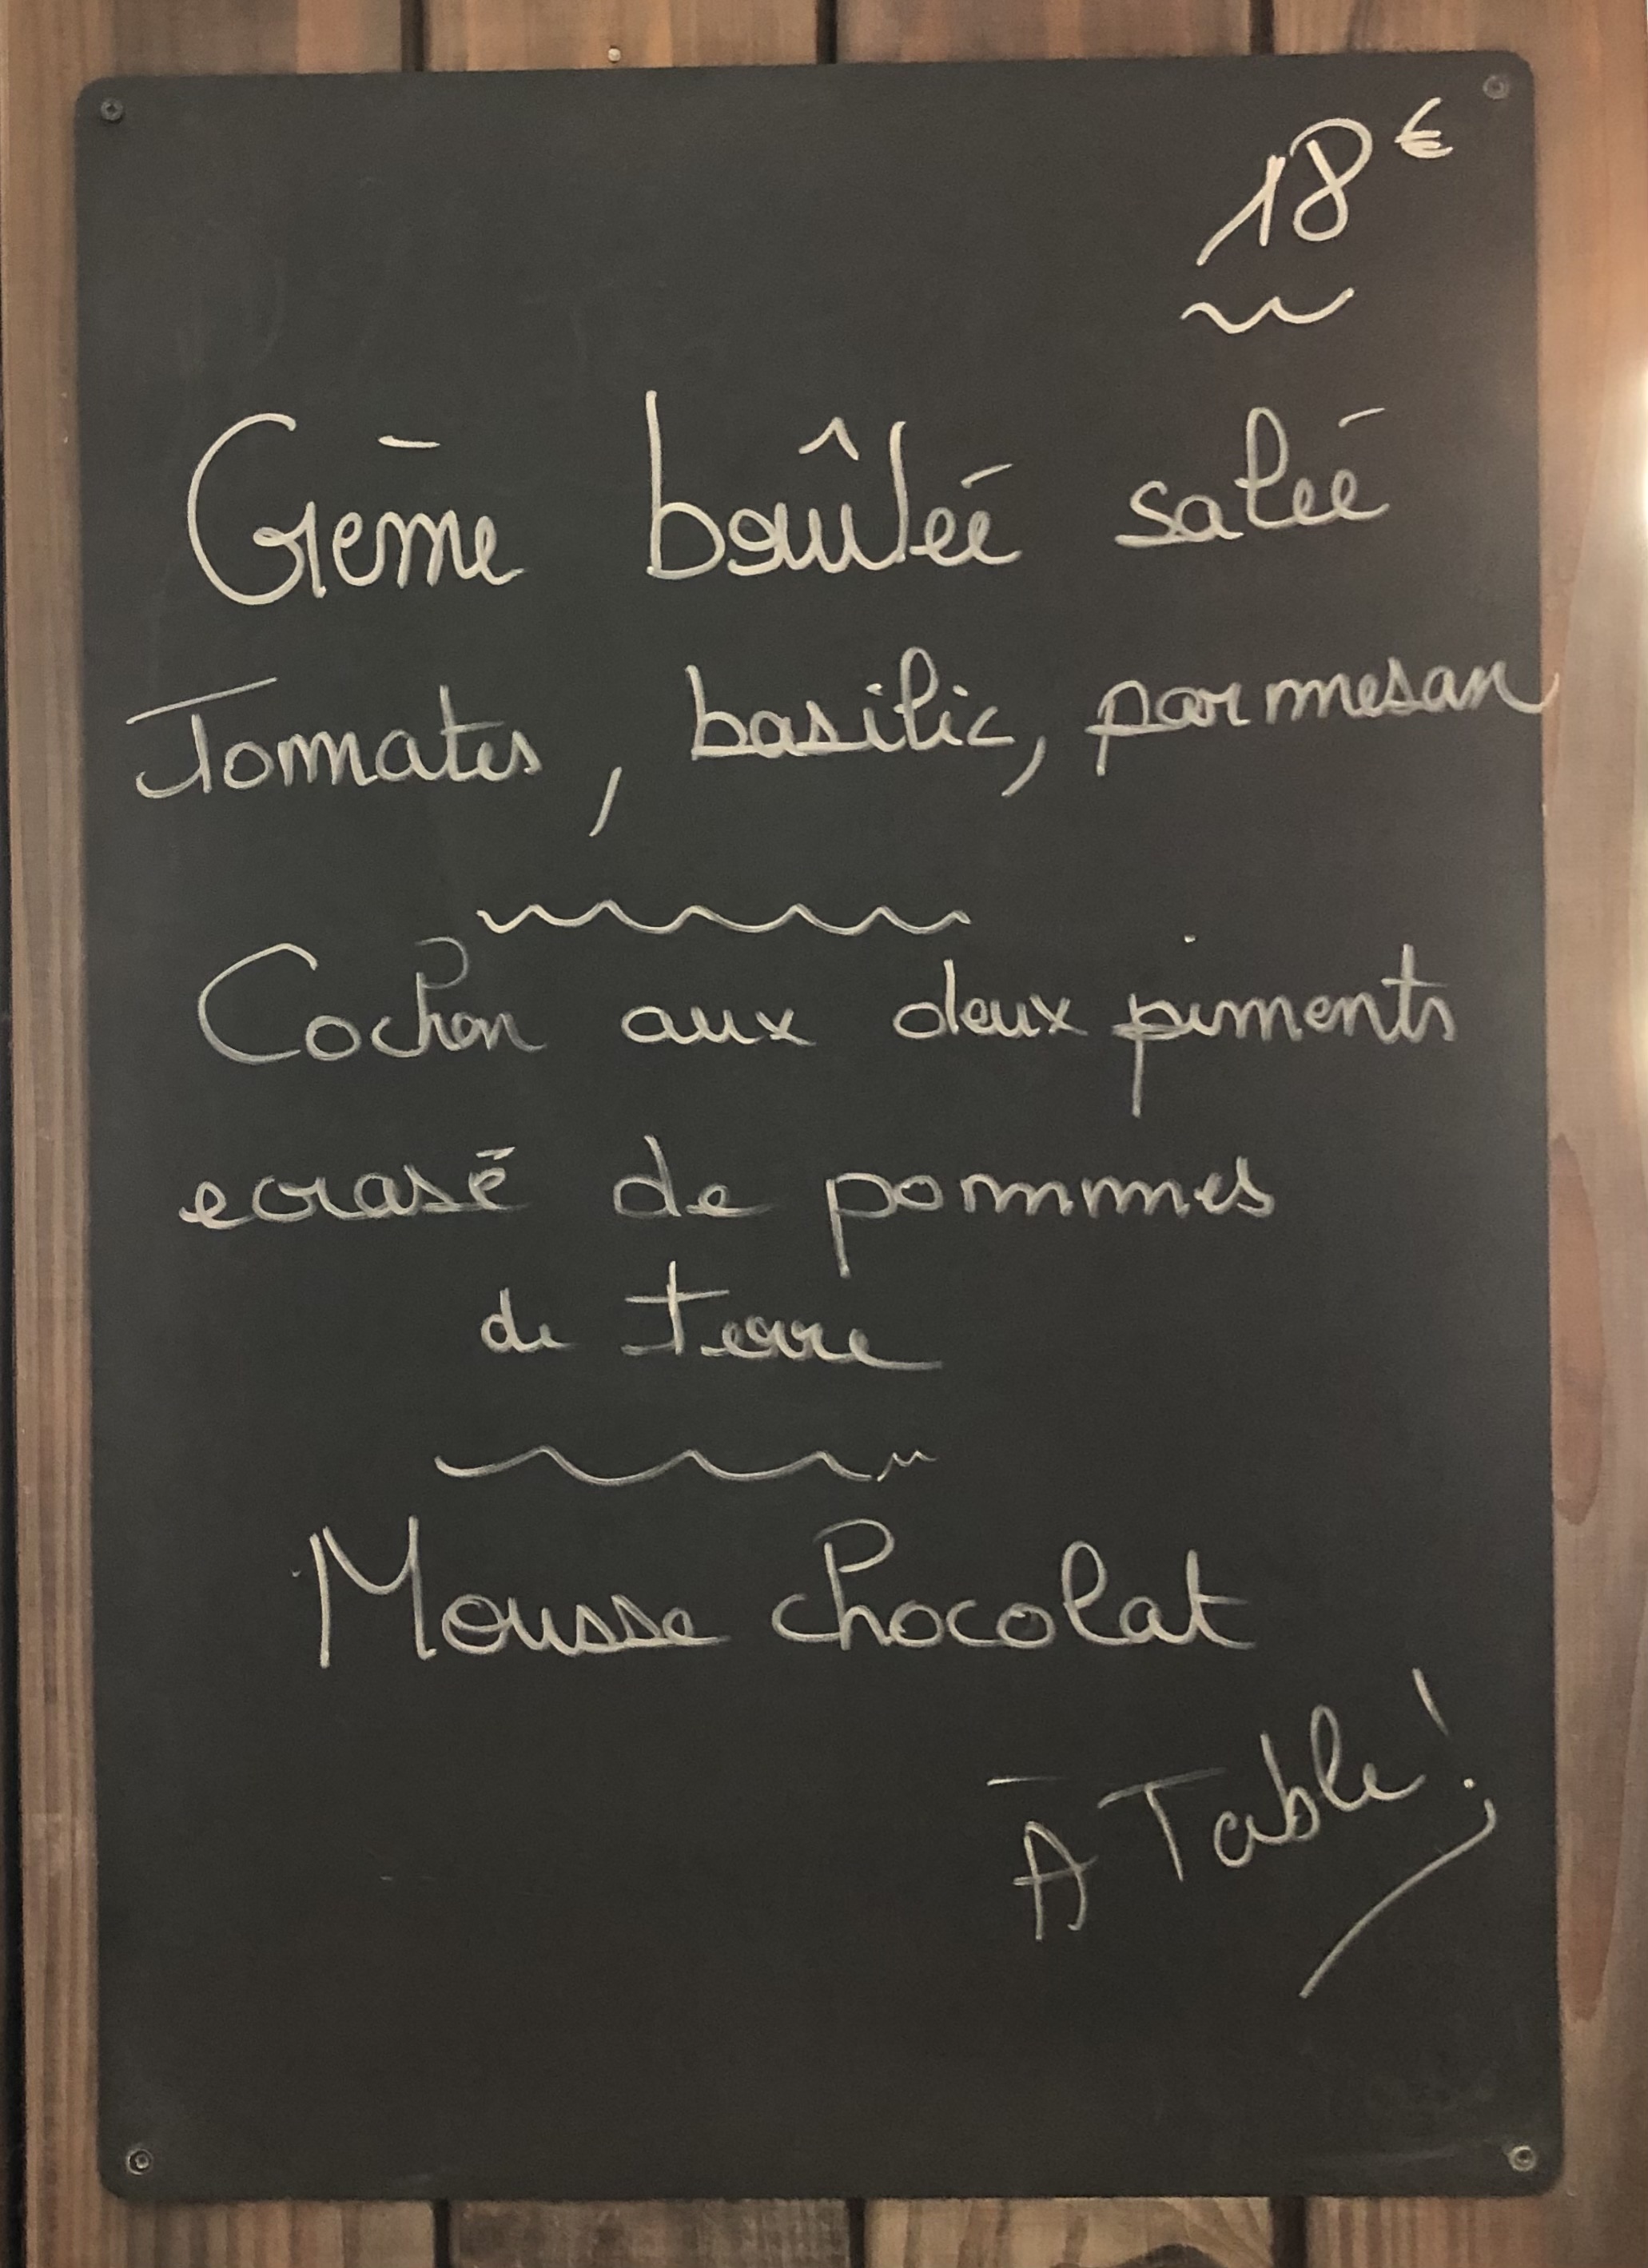 18€
Crème brûlée salée
Tomates, basilic, parmesan
Cochon aux deux piments
ecrasé de pommes
de terre
Mousse chocolat
À Table !